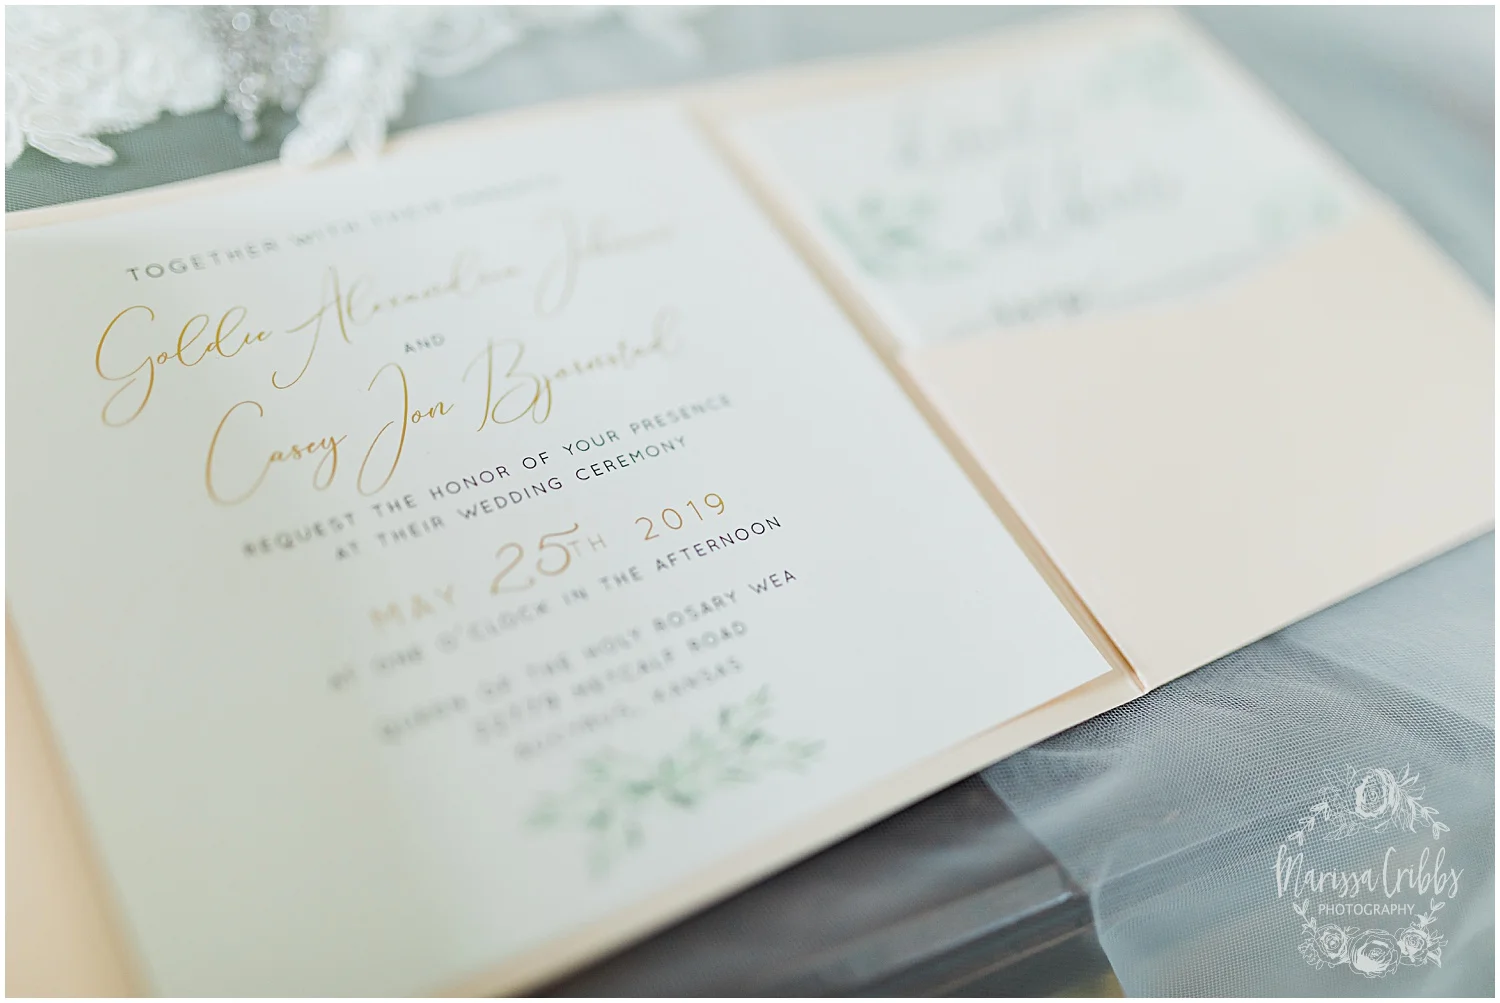 TOGETHER WITH THEIR
Goldie Alexandria
AND
Casey Jon Bjornstad
REQUEST THE HONOR OF YOUR PRESENCE
AT THEIR WEDDING CEREMONY
MAY 25TH 2019
AT ONE O'CLOCK IN THE AFTERNOON
QUEEN OF THE HOLY ROSARY WEA
METCALF ROAD
KANSAS
Marissa Cribbs
PHOTOGRAPHY